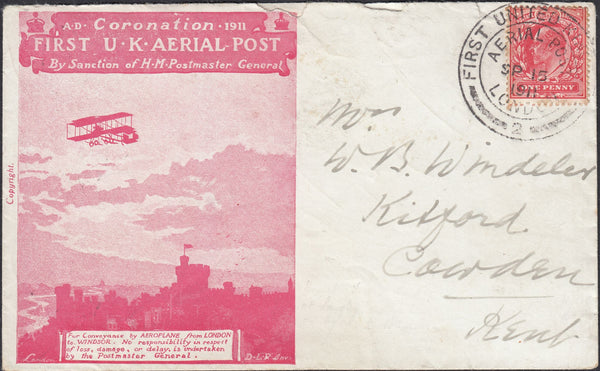 A·D· Coronation · 1911
FIRST U·K·AERIAL·POST
By Sanction of H·M·Postmaster General
Copyright.
For Conveyance by AEROPLANE from LONDON
to WINDSOR. No responsibility in respect
of loss, damage, or delay, is undertaken
by the Postmaster General.
London
FIRST UNITED
AERIAL
SP 15
1911
LONDON
2
ONE PENNY
W. B. Windeler
Kitford
Cowden
Kent